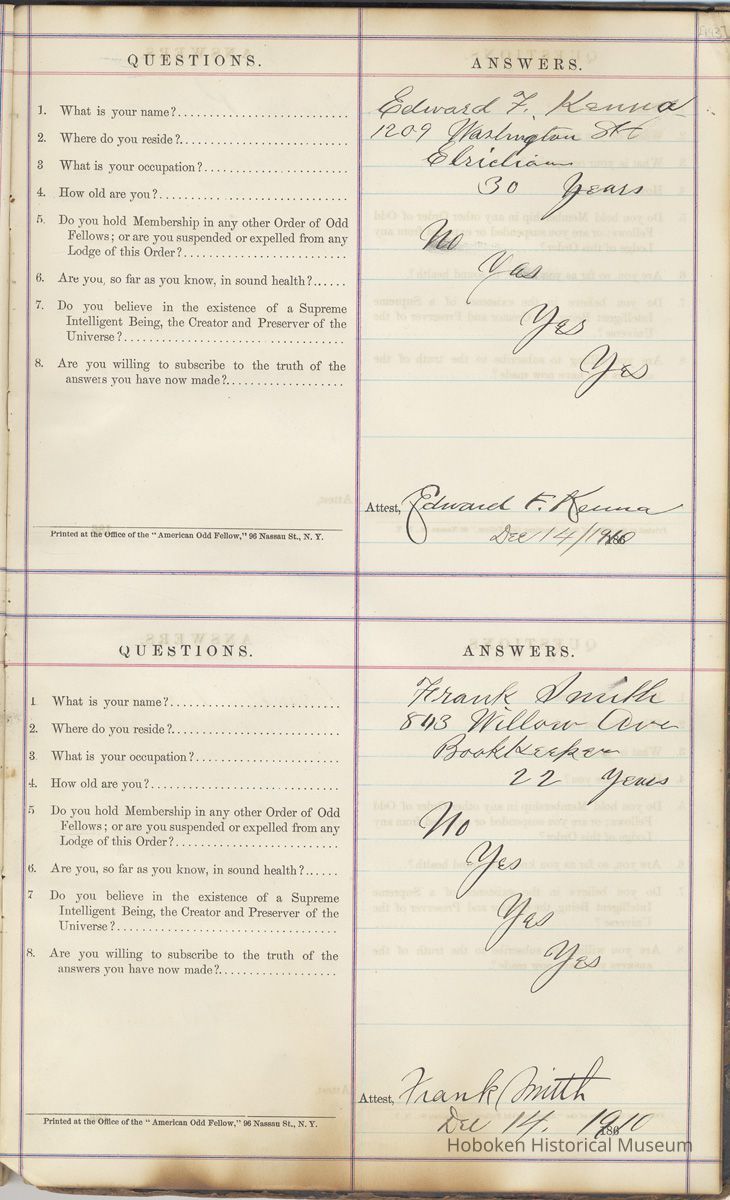 QUESTIONS. ANSWERS.
1. What is your name? Edward F. Kenna
2. Where do you reside? 1209 Washington St
3 What is your occupation? Elricician
4. How old are you? 30 years
5. Do you hold Membership in any other Order of Odd
Fellows; or are you suspended or expelled from any
Lodge of this Order? No
6. Are you, so far as you know, in sound health? Yes
7. Do you believe in the existence of a Supreme
Intelligent Being, the Creator and Preserver of the
Universe? Yes
8. Are you willing to subscribe to the truth of the
answers you have now made? Yes
Attest, Edward F. Kenna
Printed at the Office of the "American Odd Fellow," 96 Nassau St., N. Y.
Dec 14/1910
QUESTIONS. ANSWERS.
1 What is your name? Frank Smith
2. Where do you reside? 843 Willow Ave
3. What is your occupation? BookKeeper
4. How old are you? 22 Years
5 Do you hold Membership in any other Order of Odd
Fellows; or are you suspended or expelled from any
Lodge of this Order? No
6. Are you, so far as you know, in sound health? Yes
7 Do you believe in the existence of a Supreme
Intelligent Being, the Creator and Preserver of the
Universe? Yes
8. Are you willing to subscribe to the truth of the
answers you have now made? Yes
Attest, Frank Smith
Printed at the Office of the "American Odd Fellow," 96 Nassau St., N. Y.
Dec 14. 1910
Hoboken Historical Museum